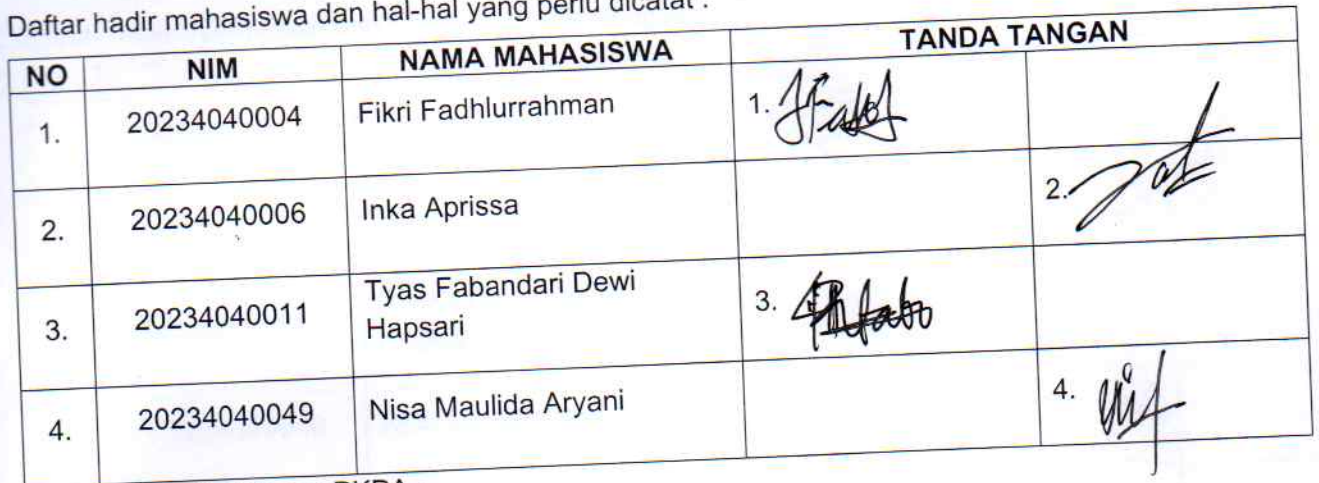 Daftar hadir mahasiswa dan hal-hal yang perlu dicatat :
NO NIM NAMA MAHASISWA TANDA TANGAN
1. 20234040004 Fikri Fadhlurrahman 1.
2. 20234040006 Inka Aprissa 2.
3. 20234040011 Tyas Fabandari Dewi
Hapsari 3.
4. 20234040049 Nisa Maulida Aryani 4.